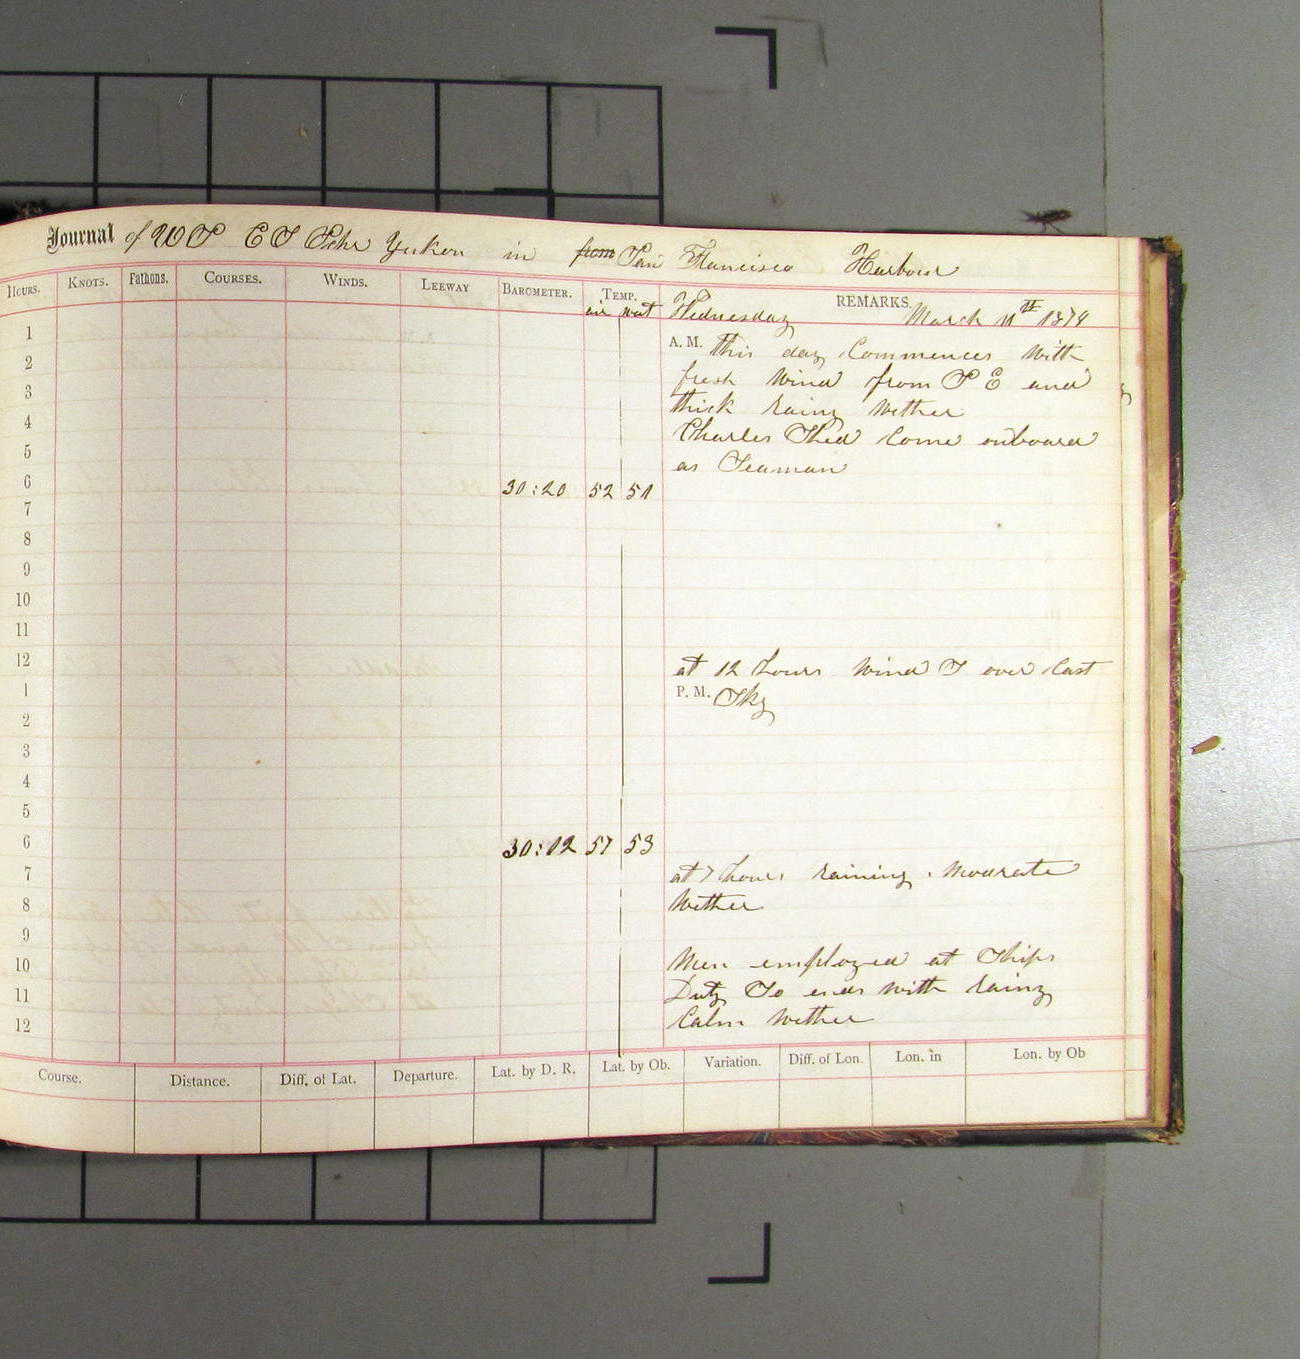 Journal of U S C S Schr Yukon in from San Francisco Harbour
HOURS. KNOTS. Fathoms. COURSES. WINDS. LEEWAY BAROMETER. TEMP. REMARKS.
air wat Wednesday March 11th 1874
1
A. M. this day Commences with
2
fresh Wind from S E and
3
thick rainy Wether
4
Charles Come onboard
5
as Seaman
6 30:20 52 51
7
8
9
10
11
12 at 12 hours Wind S over Cast
1 P. M. Sky
2
3
4
5
6 30:12 57 53
7 at 7 hours raining. Moderate
8 Wether
9
10 Men employed at Ships
11 Duty So ends with rainy
12 Calm Wether
Course. Distance. Diff. of Lat. Departure. Lat. by D. R. Lat. by Ob. Variation. Diff. of Lon. Lon. in Lon. by Ob